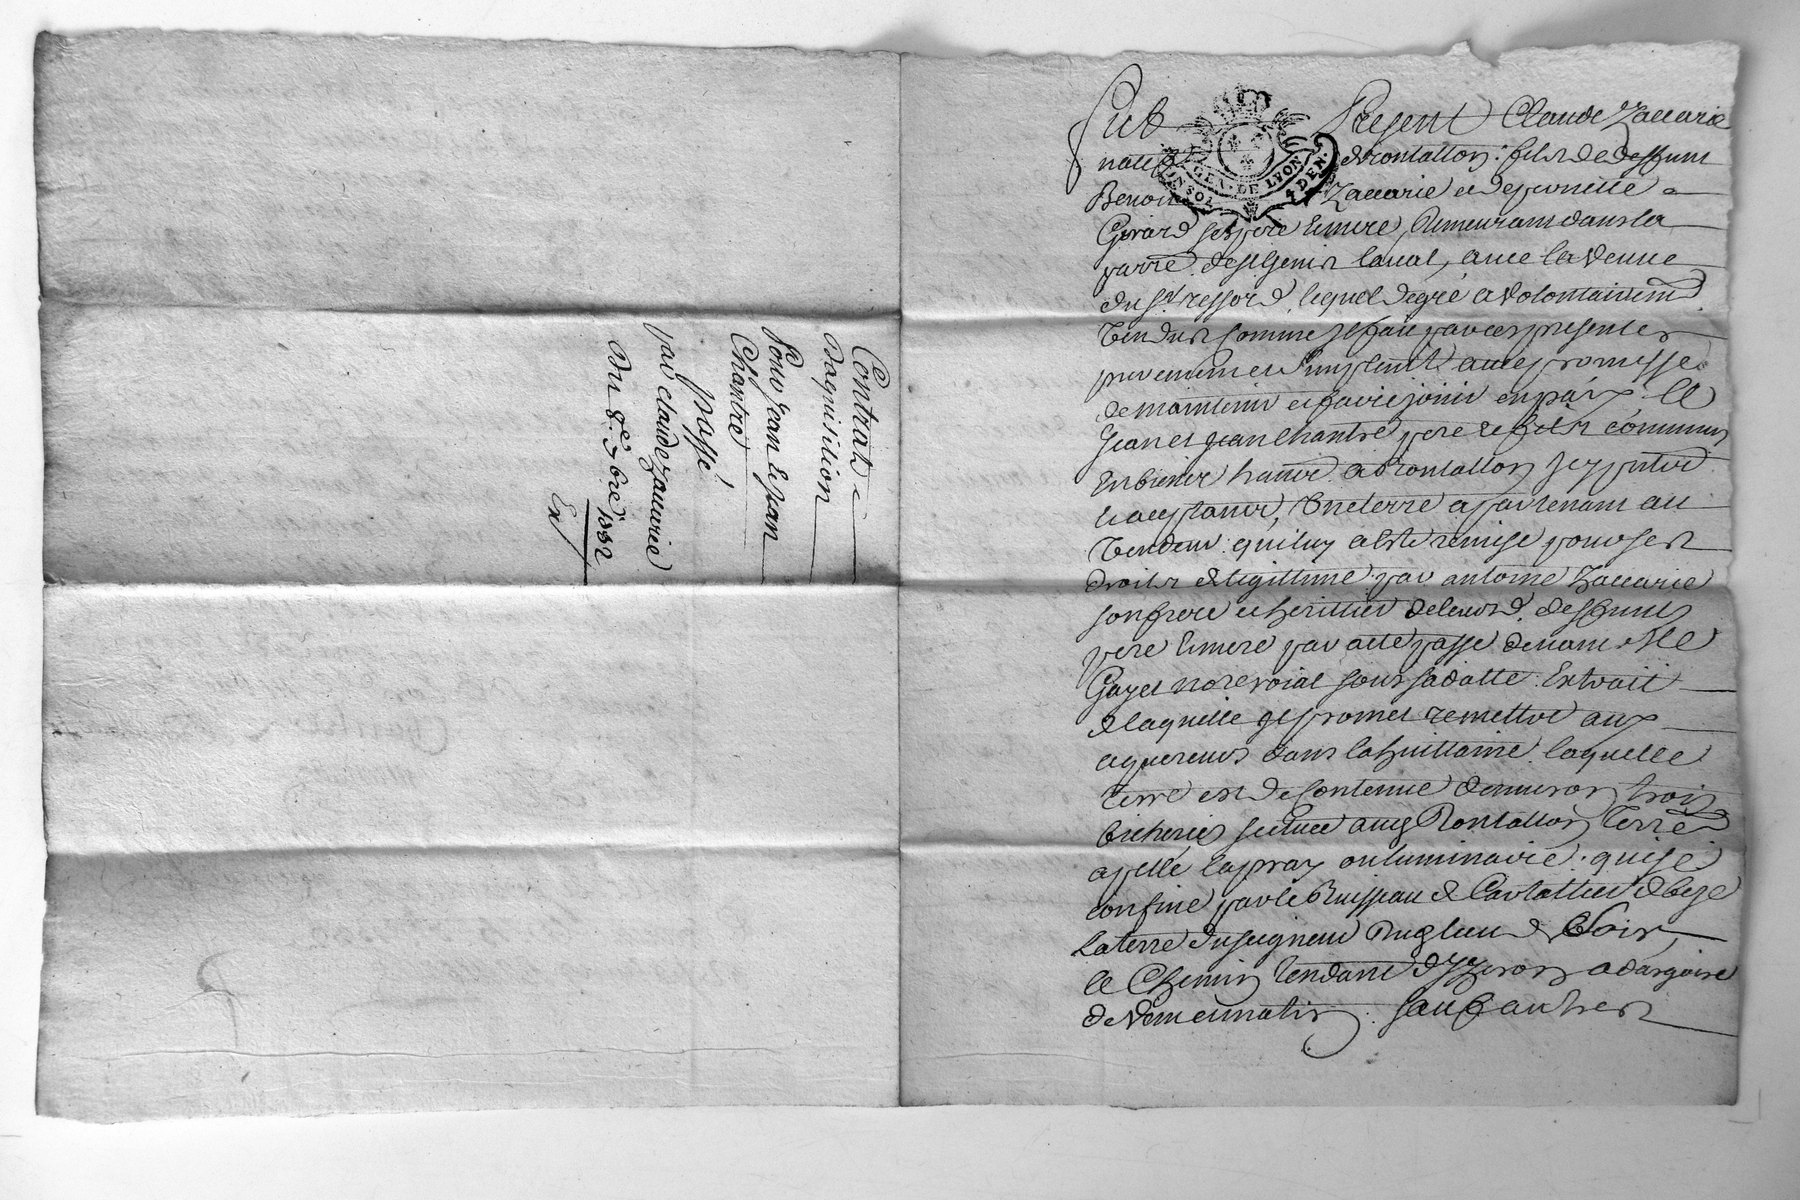 Contrat
daquisition
Pour Jean et Jean
Chantre
passé
par claude zaccarie
Du 8e 7bre
GEN. DE LYON
UN SOL 4 DEN.
Fut Present Claude Zaccarie
natif de rontallon fils de deffunt
Benoit Zaccarie et de pernette
Girard ses pere et mere demeurant dans la
parre de st Genis laval, avec la veuve
du Sr ressord, lequel de gré et volontairement
vendu comme il fait par ces presentes
purement et simplement avec promesse
de maintenir et faire jouir en paix a
Jean et Jean Chantre pere et fils communs
en biens habts a rontallon icy present
et aceptants, une terre apartenant au
vendeur quy luy a esté remise pour ses
droits de legittime par antoine Zaccarie
son frere et herittier de leurd. deffunts
pere et mere par acte passé devant Me
Gayet nore roial sous sa datte Extrait
de laquelle il promet remettre aux
aquereurs dans la huittaine laquelle
terre est de contenue denviron trois
bicherées scittuée aud Rontallon, Terre
apellé la pray ou luminaire quise
confine par le Ruisseau de Cartattier de bize
La terre du seigneur Ruglieu de soir,
le Chemin tendant dyzeron a dargoire
de vent et matin sauf autres